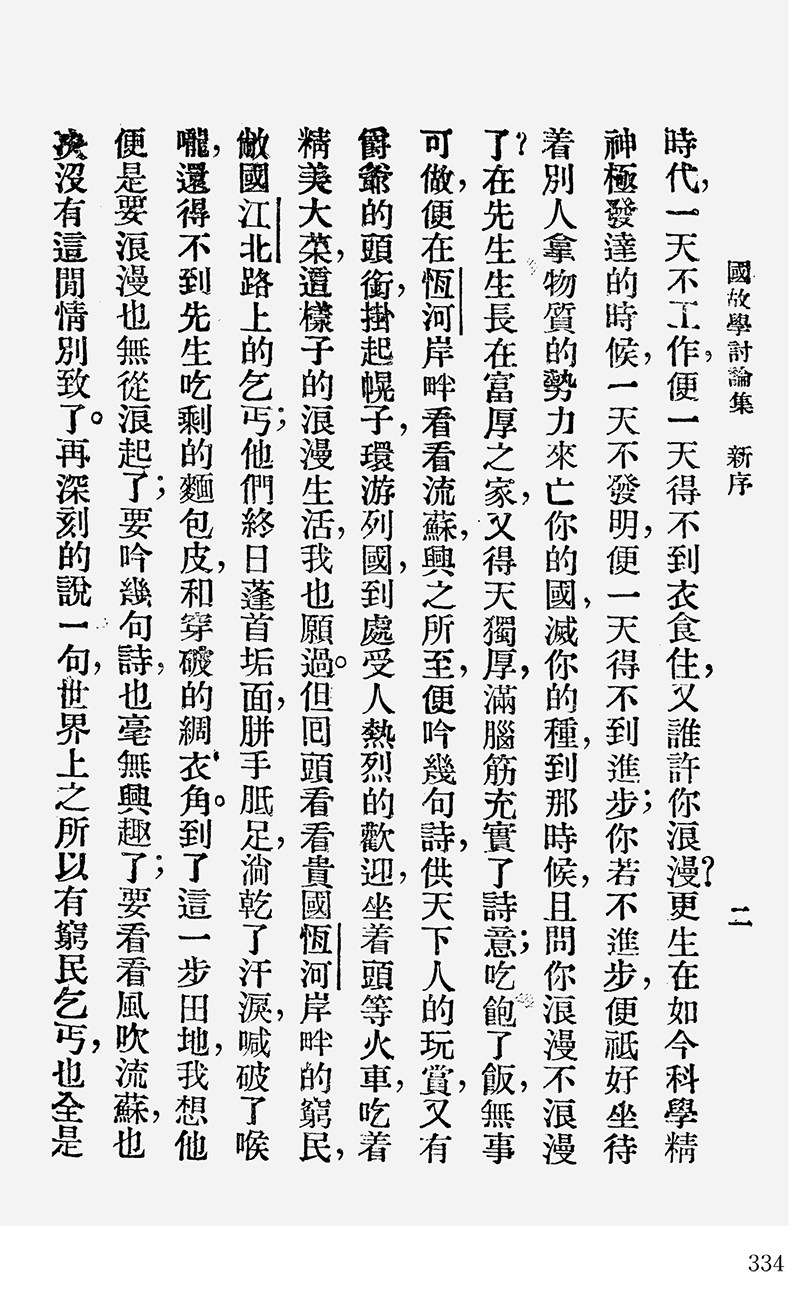 國故學討論集　新序　二
時代，一天不工作，便一天得不到衣食住，又誰許你浪漫？更生在如今科學精
神極發達的時候，一天不發明，便一天得不到進步；你若不進步，便祇好坐待
着別人拿物質的勢力來亡你的國，滅你的種，到那時候，且問你浪漫不浪漫
了？在先生生長在富厚之家，又得天獨厚，滿腦筋充實了詩意；吃飽了飯，無事
可做，便在恆河岸畔看看流蘇，興之所至，便吟幾句詩，供天下人的玩賞，又有
爵爺的頭銜，掛起幌子，環游列國，到處受人熱烈的歡迎，坐着頭等火車，吃着
精美大菜，這樣子的浪漫生活，我也願過。但回頭看看貴國恆河岸畔的窮民，
敝國江北路上的乞丐；他們終日蓬首垢面，胼手胝足，淌乾了汗淚，喊破了喉
嚨，還得不到先生吃剩的麵包皮，和穿破的綢衣角。到了這一步田地，我想他
便是要浪漫也無從浪起了；要吟幾句詩，也毫無興趣了；要看看風吹流蘇，也
決沒有這閒情別致了。再深刻的說一句，世界上之所以有窮民乞丐，也全是
334